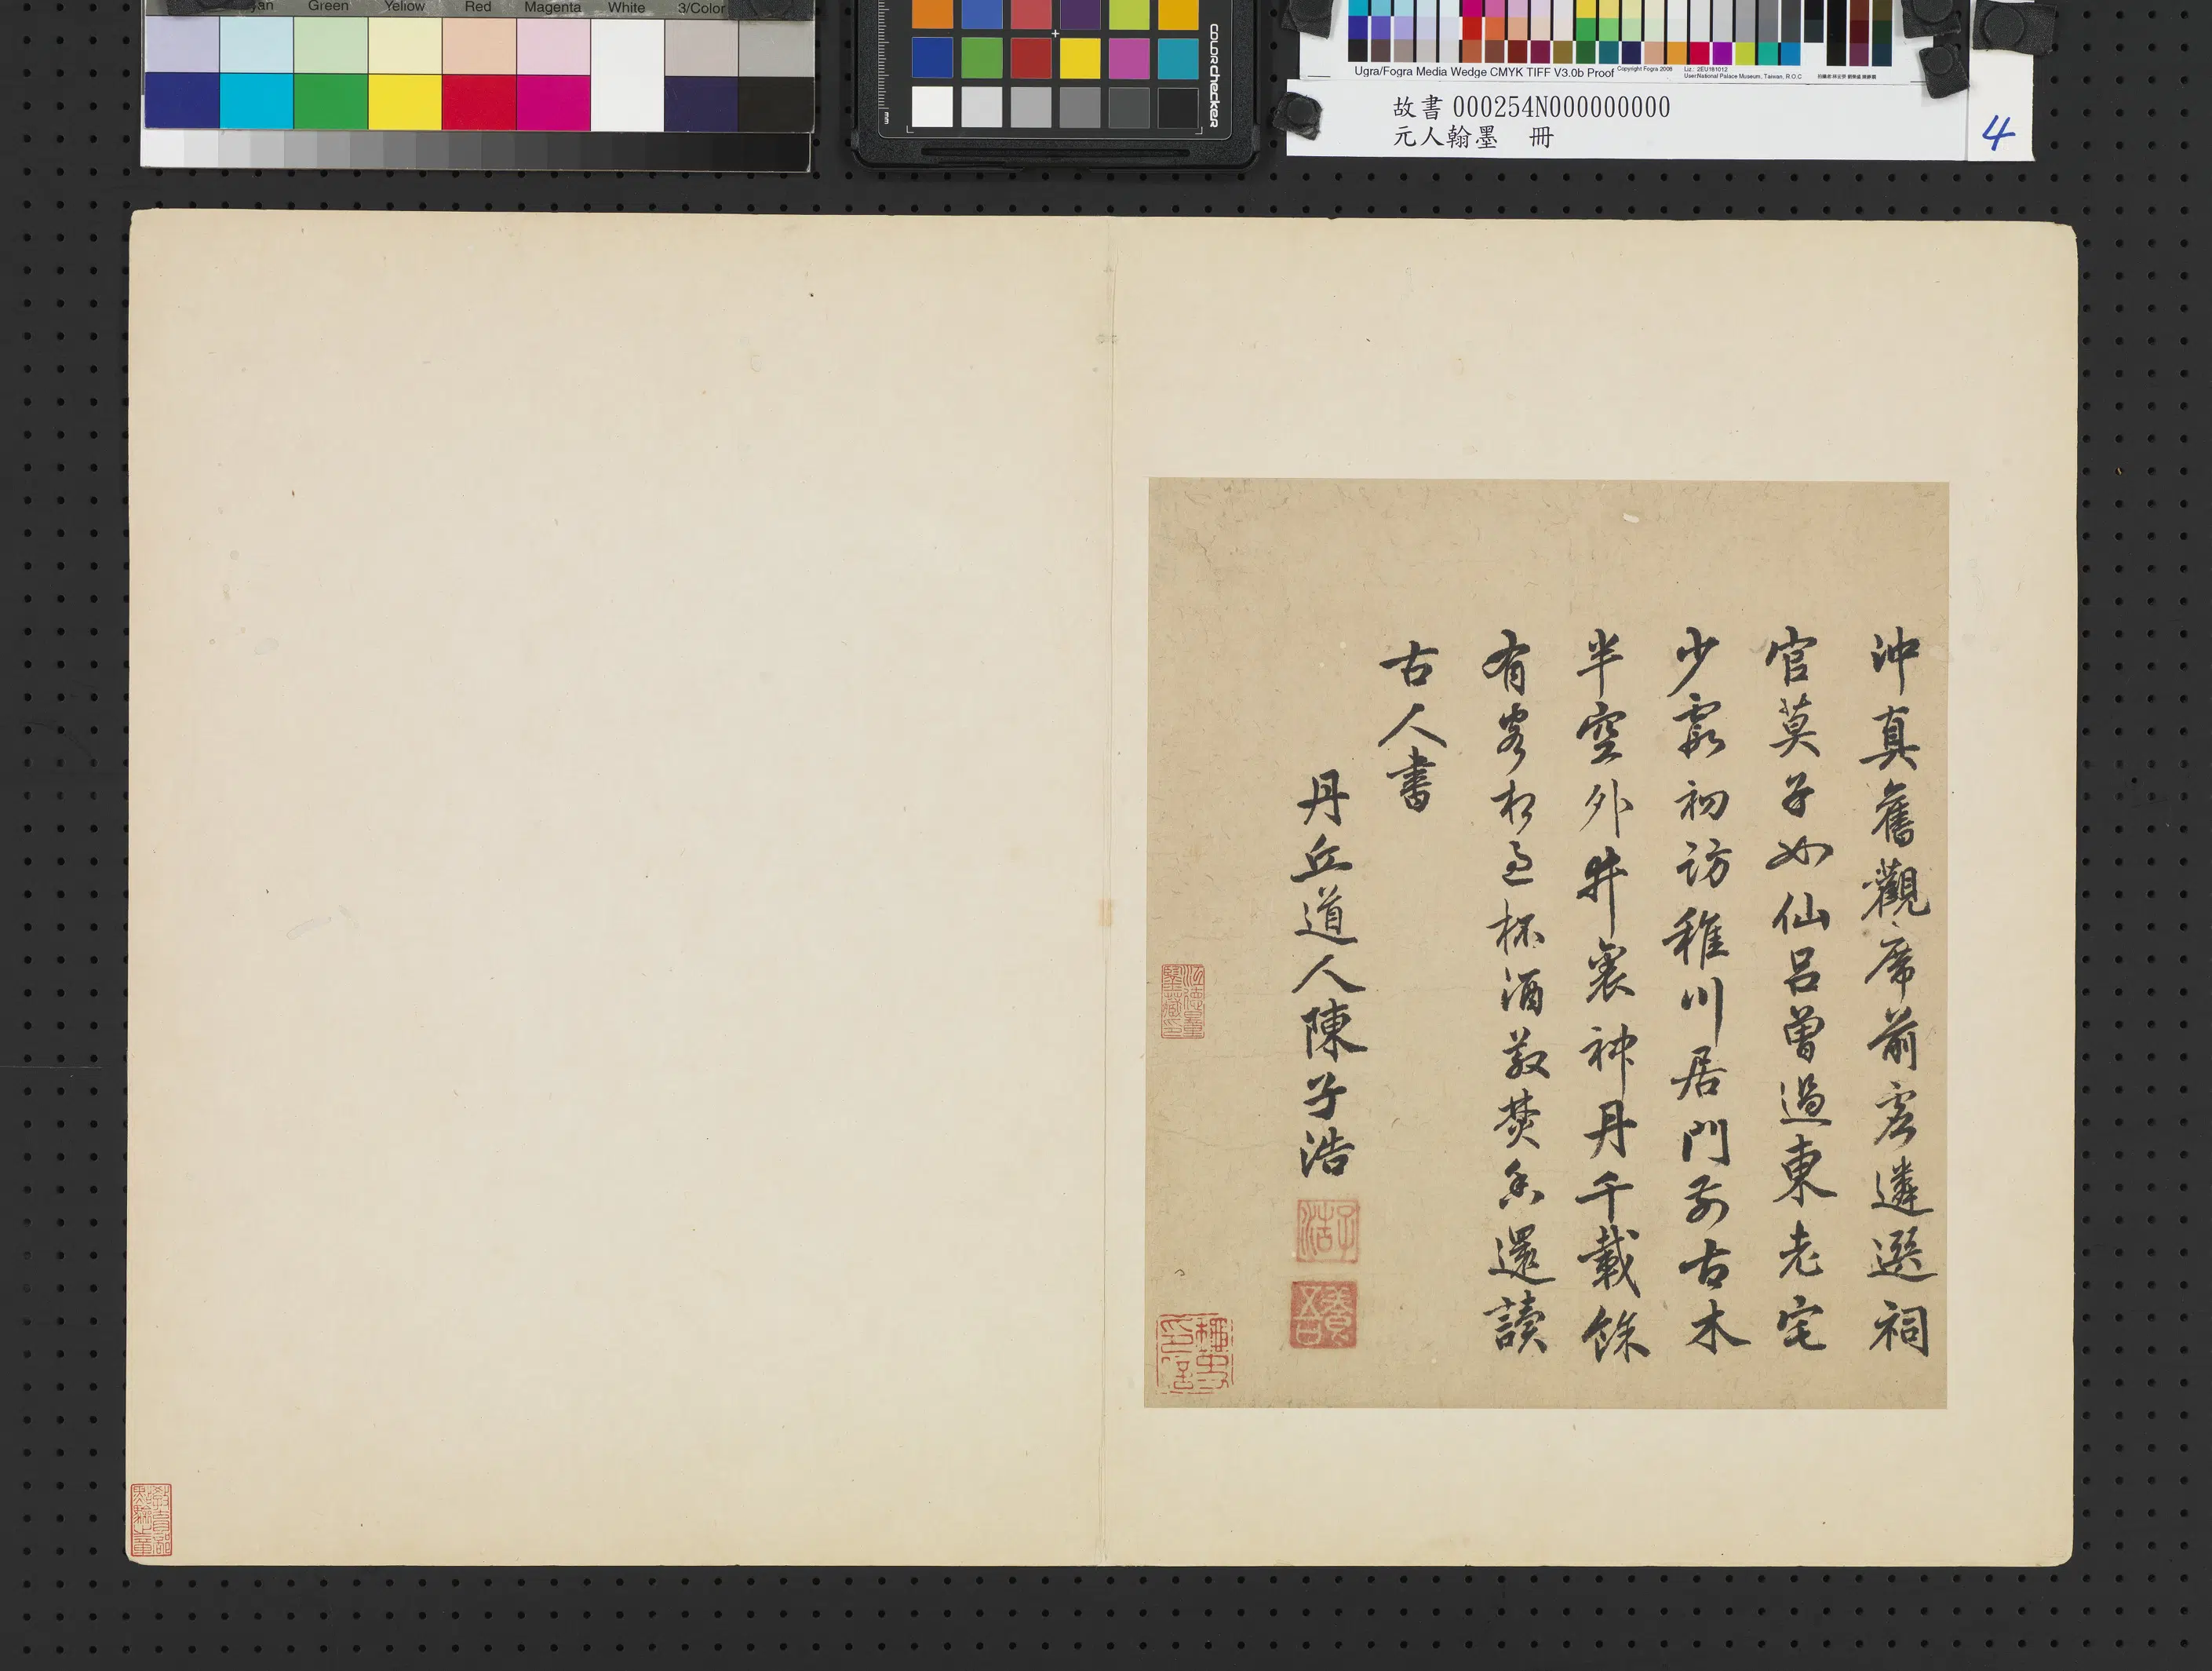 Green
Yellow
Red
Magenta
White
3/Color
colorchecker
mm
Ugra/Fogra Media Wedge CMYK TIFF V3.0b Proof
Copyright Fogra 2008
User:National Palace Museum, Taiwan, R.O.C
故書 000254N000000000
元人翰墨 冊
4
沖真舊觀席前虛遴選祠
官莫子如仙呂曾過東老宅
少霞初訪稚川居門前古木
半空外井裏神丹千載餘
有客相過杯酒散焚香還讀
古人書
丹丘道人陳子浩
子浩
養吾